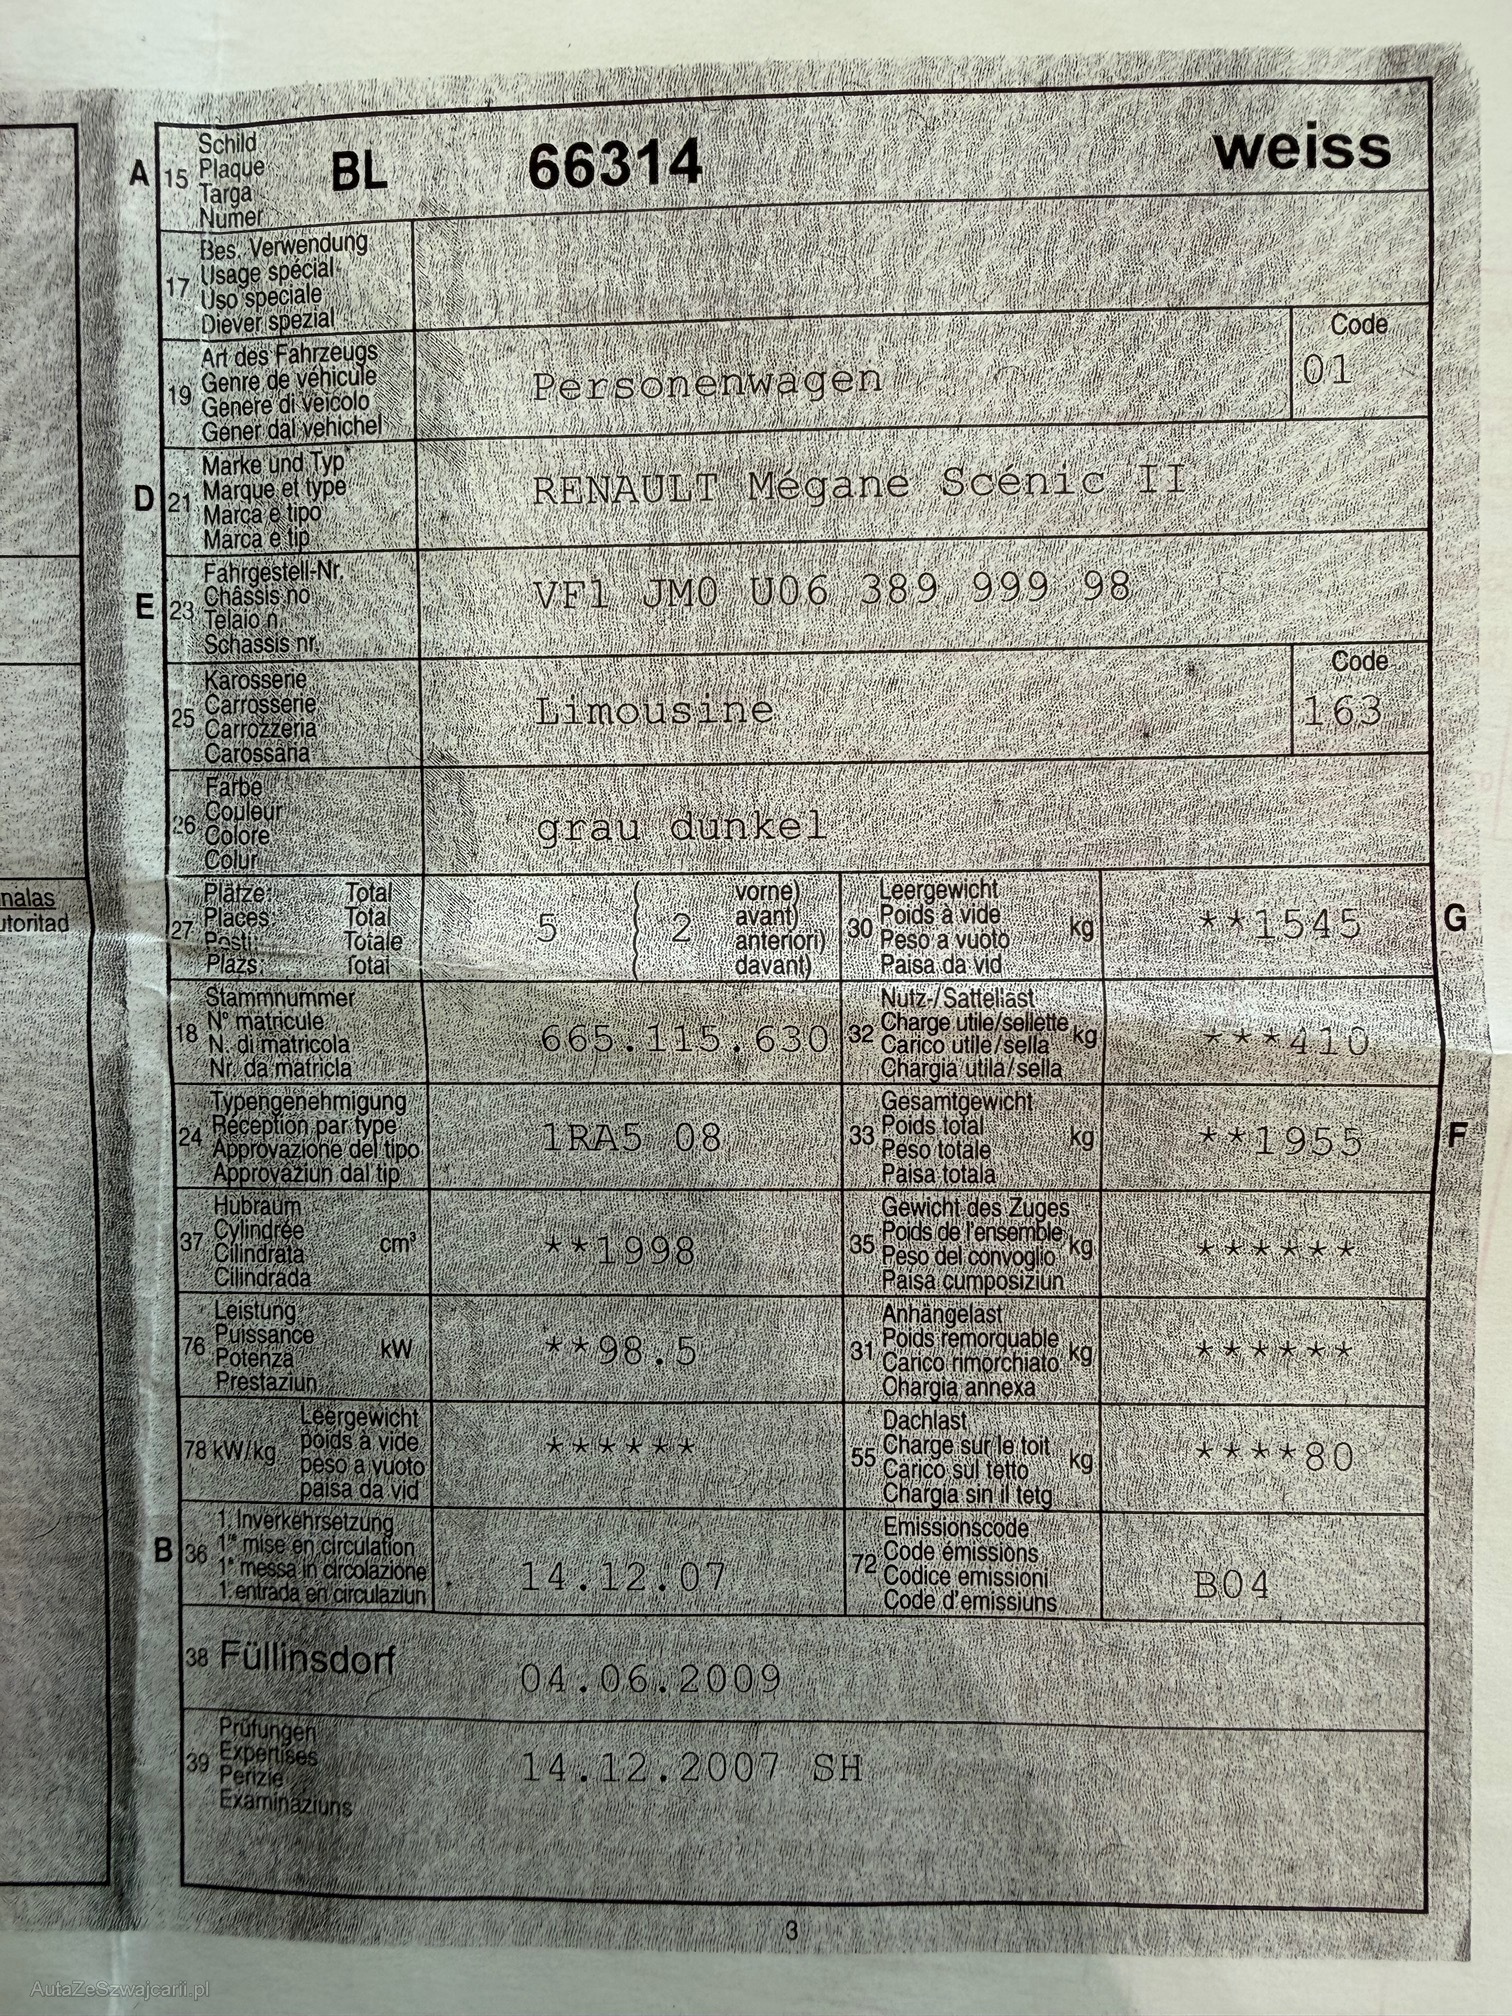 A 15 Schild Plaque Targa Numer BL 66314 weiss
17 Bes. Verwendung
Usage spécial
Uso speciale
Diever spezial
Code
19 Art des Fahrzeugs
Genre de véhicule
Genere di veicolo
Gener dal vehichel
Personenwagen 01
D 21 Marke und Typ
Marque et type
Marca e tipo
Marca e tip
RENAULT Mégane Scénic II
E 23 Fahrgestell-Nr.
Châssis no
Telaio n.
Schassis nr.
VF1 JM0 U06 389 999 98
Code
25 Karosserie
Carrosserie
Carrozzeria
Carossaria
Limousine 163
26 Farbe
Couleur
Colore
Colur
grau dunkel
nalas
utoritad
27 Plätze: Total
Places: Total
Posti: Totale
Plazs: Total
5 ( 2 vorne)
avant)
anteriori)
davant)
30 Leergewicht
Poids à vide
Peso a vuoto
Paisa da vid
kg **1545 G
18 Stammnummer
N° matricule
N. di matricola
Nr. da matricla
665.115.630
32 Nutz-/Sattellast
Charge utile/sellette
Carico utile/sella
Chargia utila/sella
kg ***410
24 Typengenehmigung
Réception par type
Approvazione del tipo
Approvaziun dal tip
1RA5 08
33 Gesamtgewicht
Poids total
Peso totale
Paisa totala
kg **1955 F
37 Hubraum
Cylindrée
Cilindrata
Cilindrada
cm³ **1998
35 Gewicht des Zuges
Poids de l'ensemble
Peso del convoglio
Paisa cumposiziun
kg ******
76 Leistung
Puissance
Potenza
Prestaziun
kW **98.5
31 Anhängelast
Poids remorquable
Carico rimorchiato
Chargia annexa
kg ******
78 kW/kg Leergewicht
poids à vide
peso a vuoto
paisa da vid
******
55 Dachlast
Charge sur le toit
Carico sul tetto
Chargia sin il tetg
kg ****80
B 36 1. Inverkehrsetzung
1re mise en circulation
1a messa in circolazione
1. entrada en circulaziun
14.12.07
72 Emissionscode
Code émissions
Codice emissioni
Code d'emissiuns
B04
38 Füllinsdorf 04.06.2009
39 Prüfungen
Expertises
Perizie
Examinaziuns
14.12.2007 SH
3
AutaZeSzwajcarii.pl